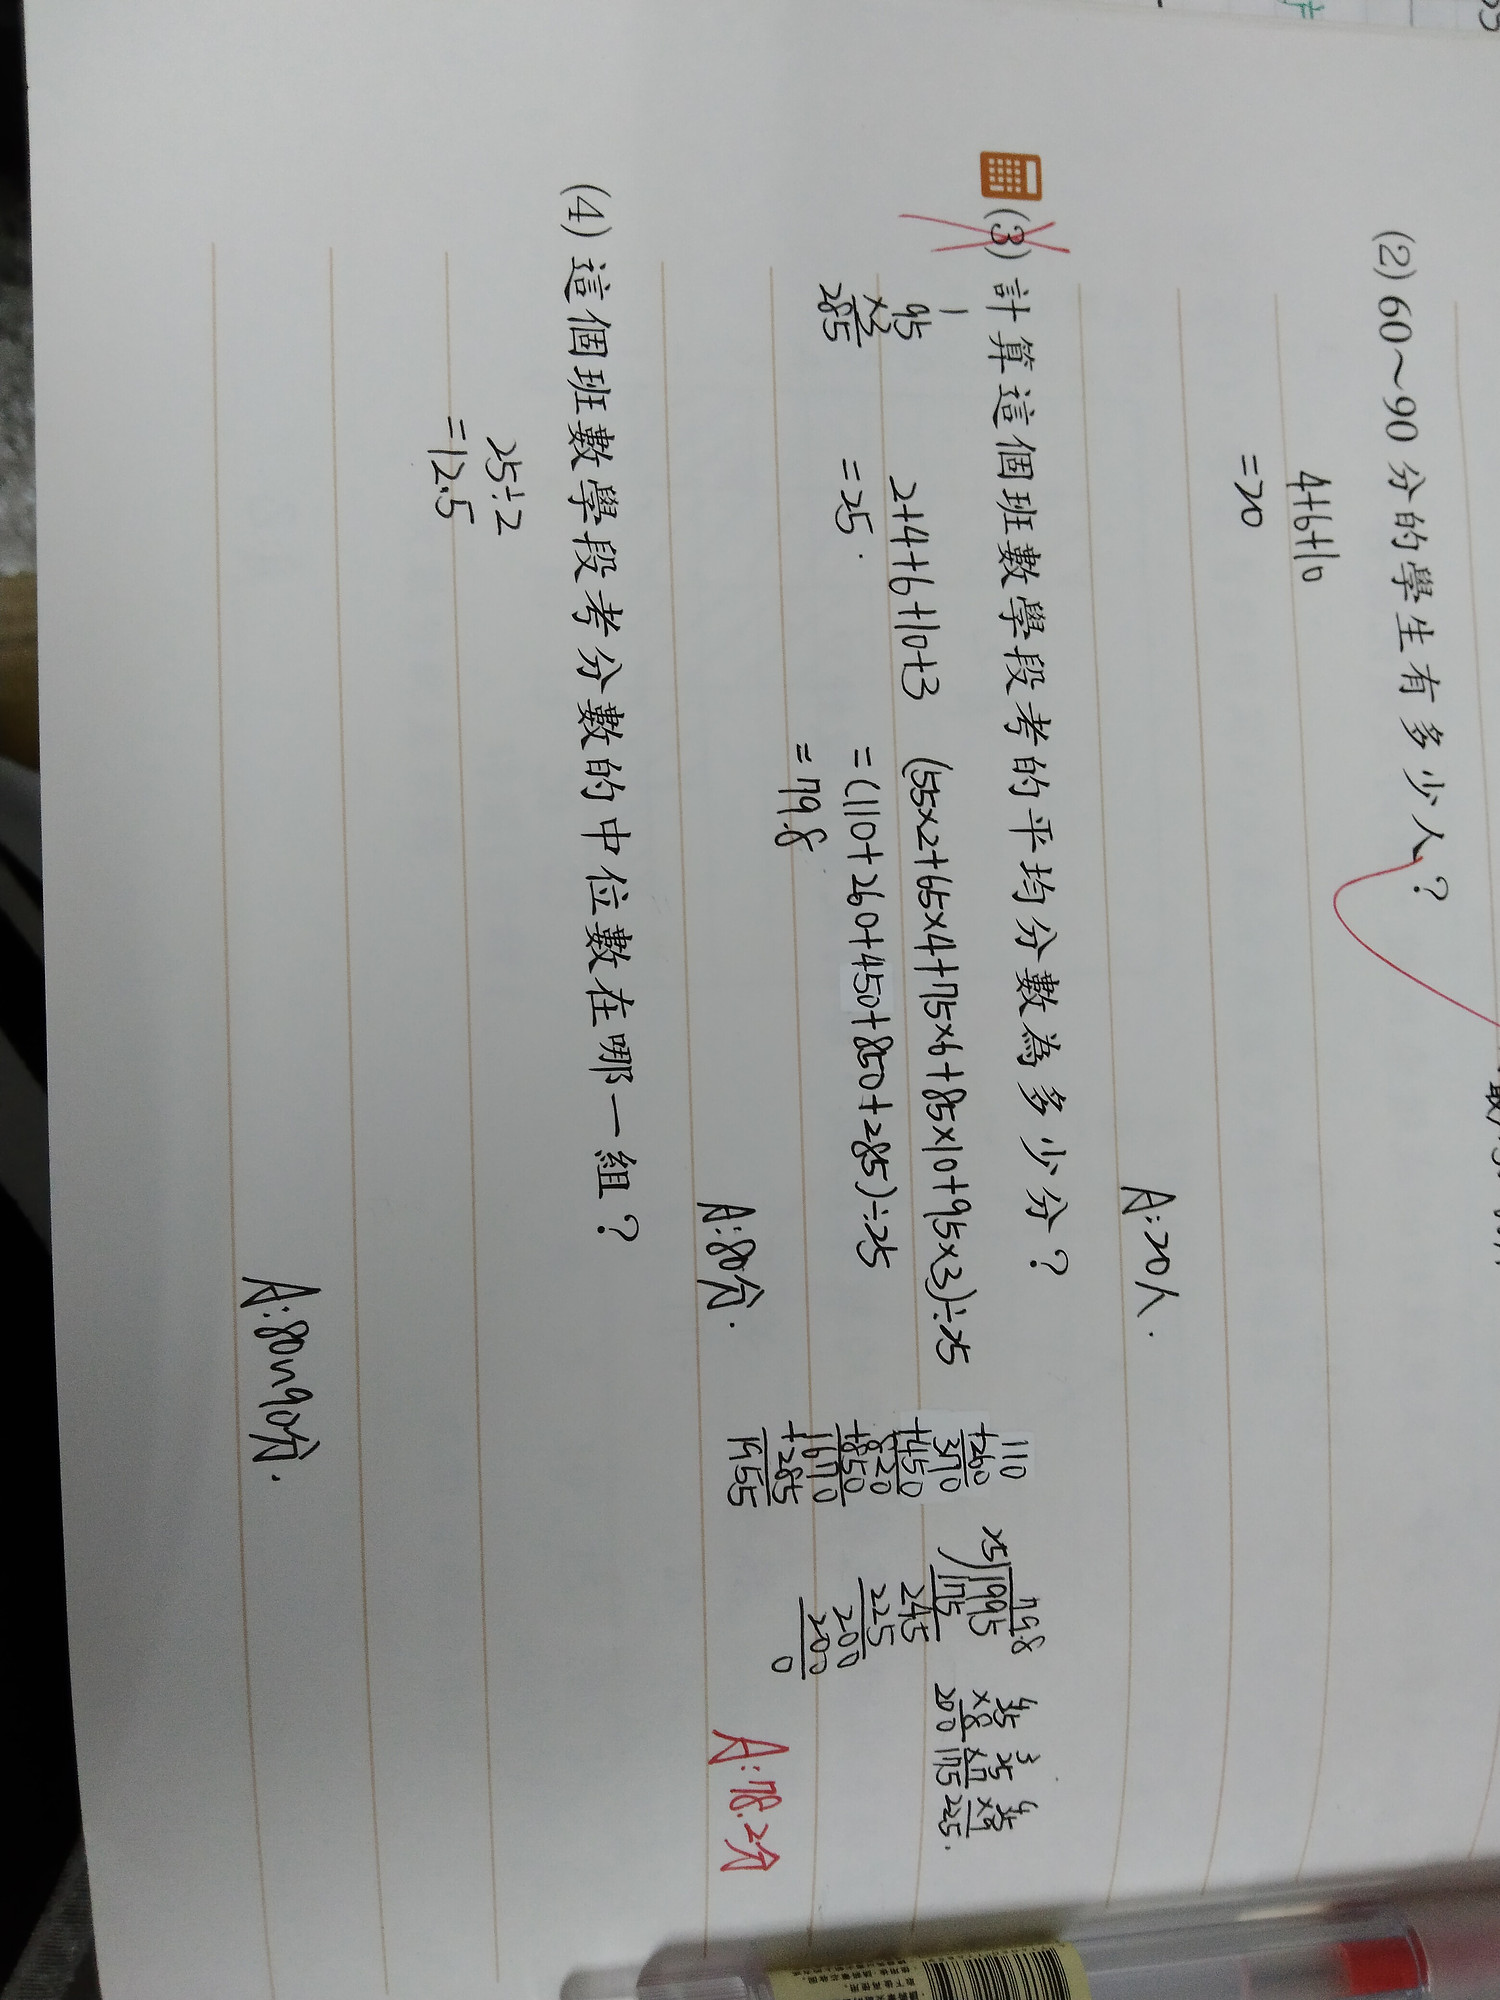 (2) 60～90 分的學生有多少人？
4+6+10
=20
A:20人.
(3) 計算這個班數學段考的平均分數為多少分？
1
95
×3
285
2+4+6+10+3
=25.
(55×2+65×4+75×6+85×10+95×3)÷25
=(110+260+450+850+285)÷25
=79.8
A:80分.
110
+260
370
+450
820
+850
1670
+285
1955
79.8
25)1995
175
245
225
200
200
0
4
25
×8
200
3
25
×7
175
4
25
×9
225.
A:78.2分
(4) 這個班數學段考分數的中位數在哪一組？
25÷2
=12.5
A:80~90分.